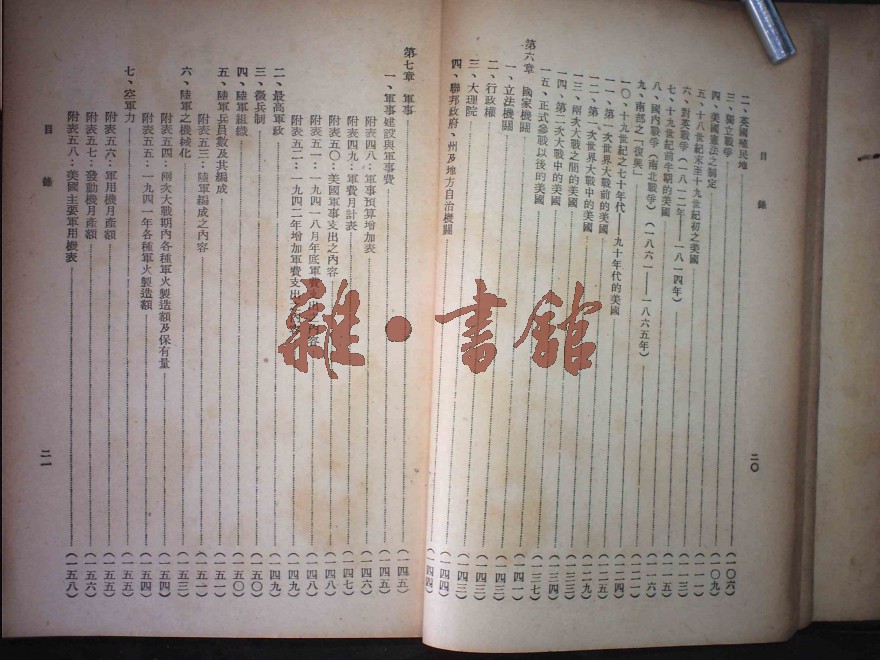 目錄
二〇
二、英國殖民地 (一〇六)
三、獨立戰爭
四、美國憲法之制定 (一〇九)
五、十八世紀末至十九世紀初之美國
六、對英戰爭(一八一二年——一八一四年)
七、十九世紀前半期的美國
八、國內戰爭(南北戰爭)(一八六一——一八六五年)
九、南部之「復興」
一〇、十九世紀之七十年代——九十年代的美國
一一、第一次世界大戰前的美國
一二、第一次世界大戰中的美國
一三、兩次大戰之間的美國
一四、第二次大戰中的美國
一五、正式參戰以後的美國 (一三七)
第六章 國家機關 (一四一)
一、立法機關
二、行政權 (一四三)
三、大理院 (一四三)
四、聯邦政府、州及地方自治機關 (一四四)
第七章 軍事 (一四五)
一、軍事建設與軍事費 (一四五)
附表四八：軍事預算增加表 (一四六)
附表四九：軍費月計表 (一四七)
附表五〇：美國軍事支出之內容 (一四八)
附表五一：一九四一八月年底軍費支出之內容 (一四八)
附表五二：一九四二年增加軍費支出之內容 (一四九)
二、最高軍政 (一四九)
三、徵兵制 (一五〇)
四、陸軍組織 (一五〇)
五、陸軍兵員數及其編成 (一五一)
附表五三：陸軍編成之內容 (一五二)
六、陸軍之機械化 (一五三)
附表五四：兩次大戰期內各種軍火製造額及保有量 (一五四)
附表五五：一九四一年各種軍火製造額 (一五四)
七、空軍力 (一五五)
附表五六：軍用機月產額 (一五五)
附表五七：發動機月產額 (一五六)
附表五八：美國主要軍用機表 (一五八)
目錄
二一
雜·書館